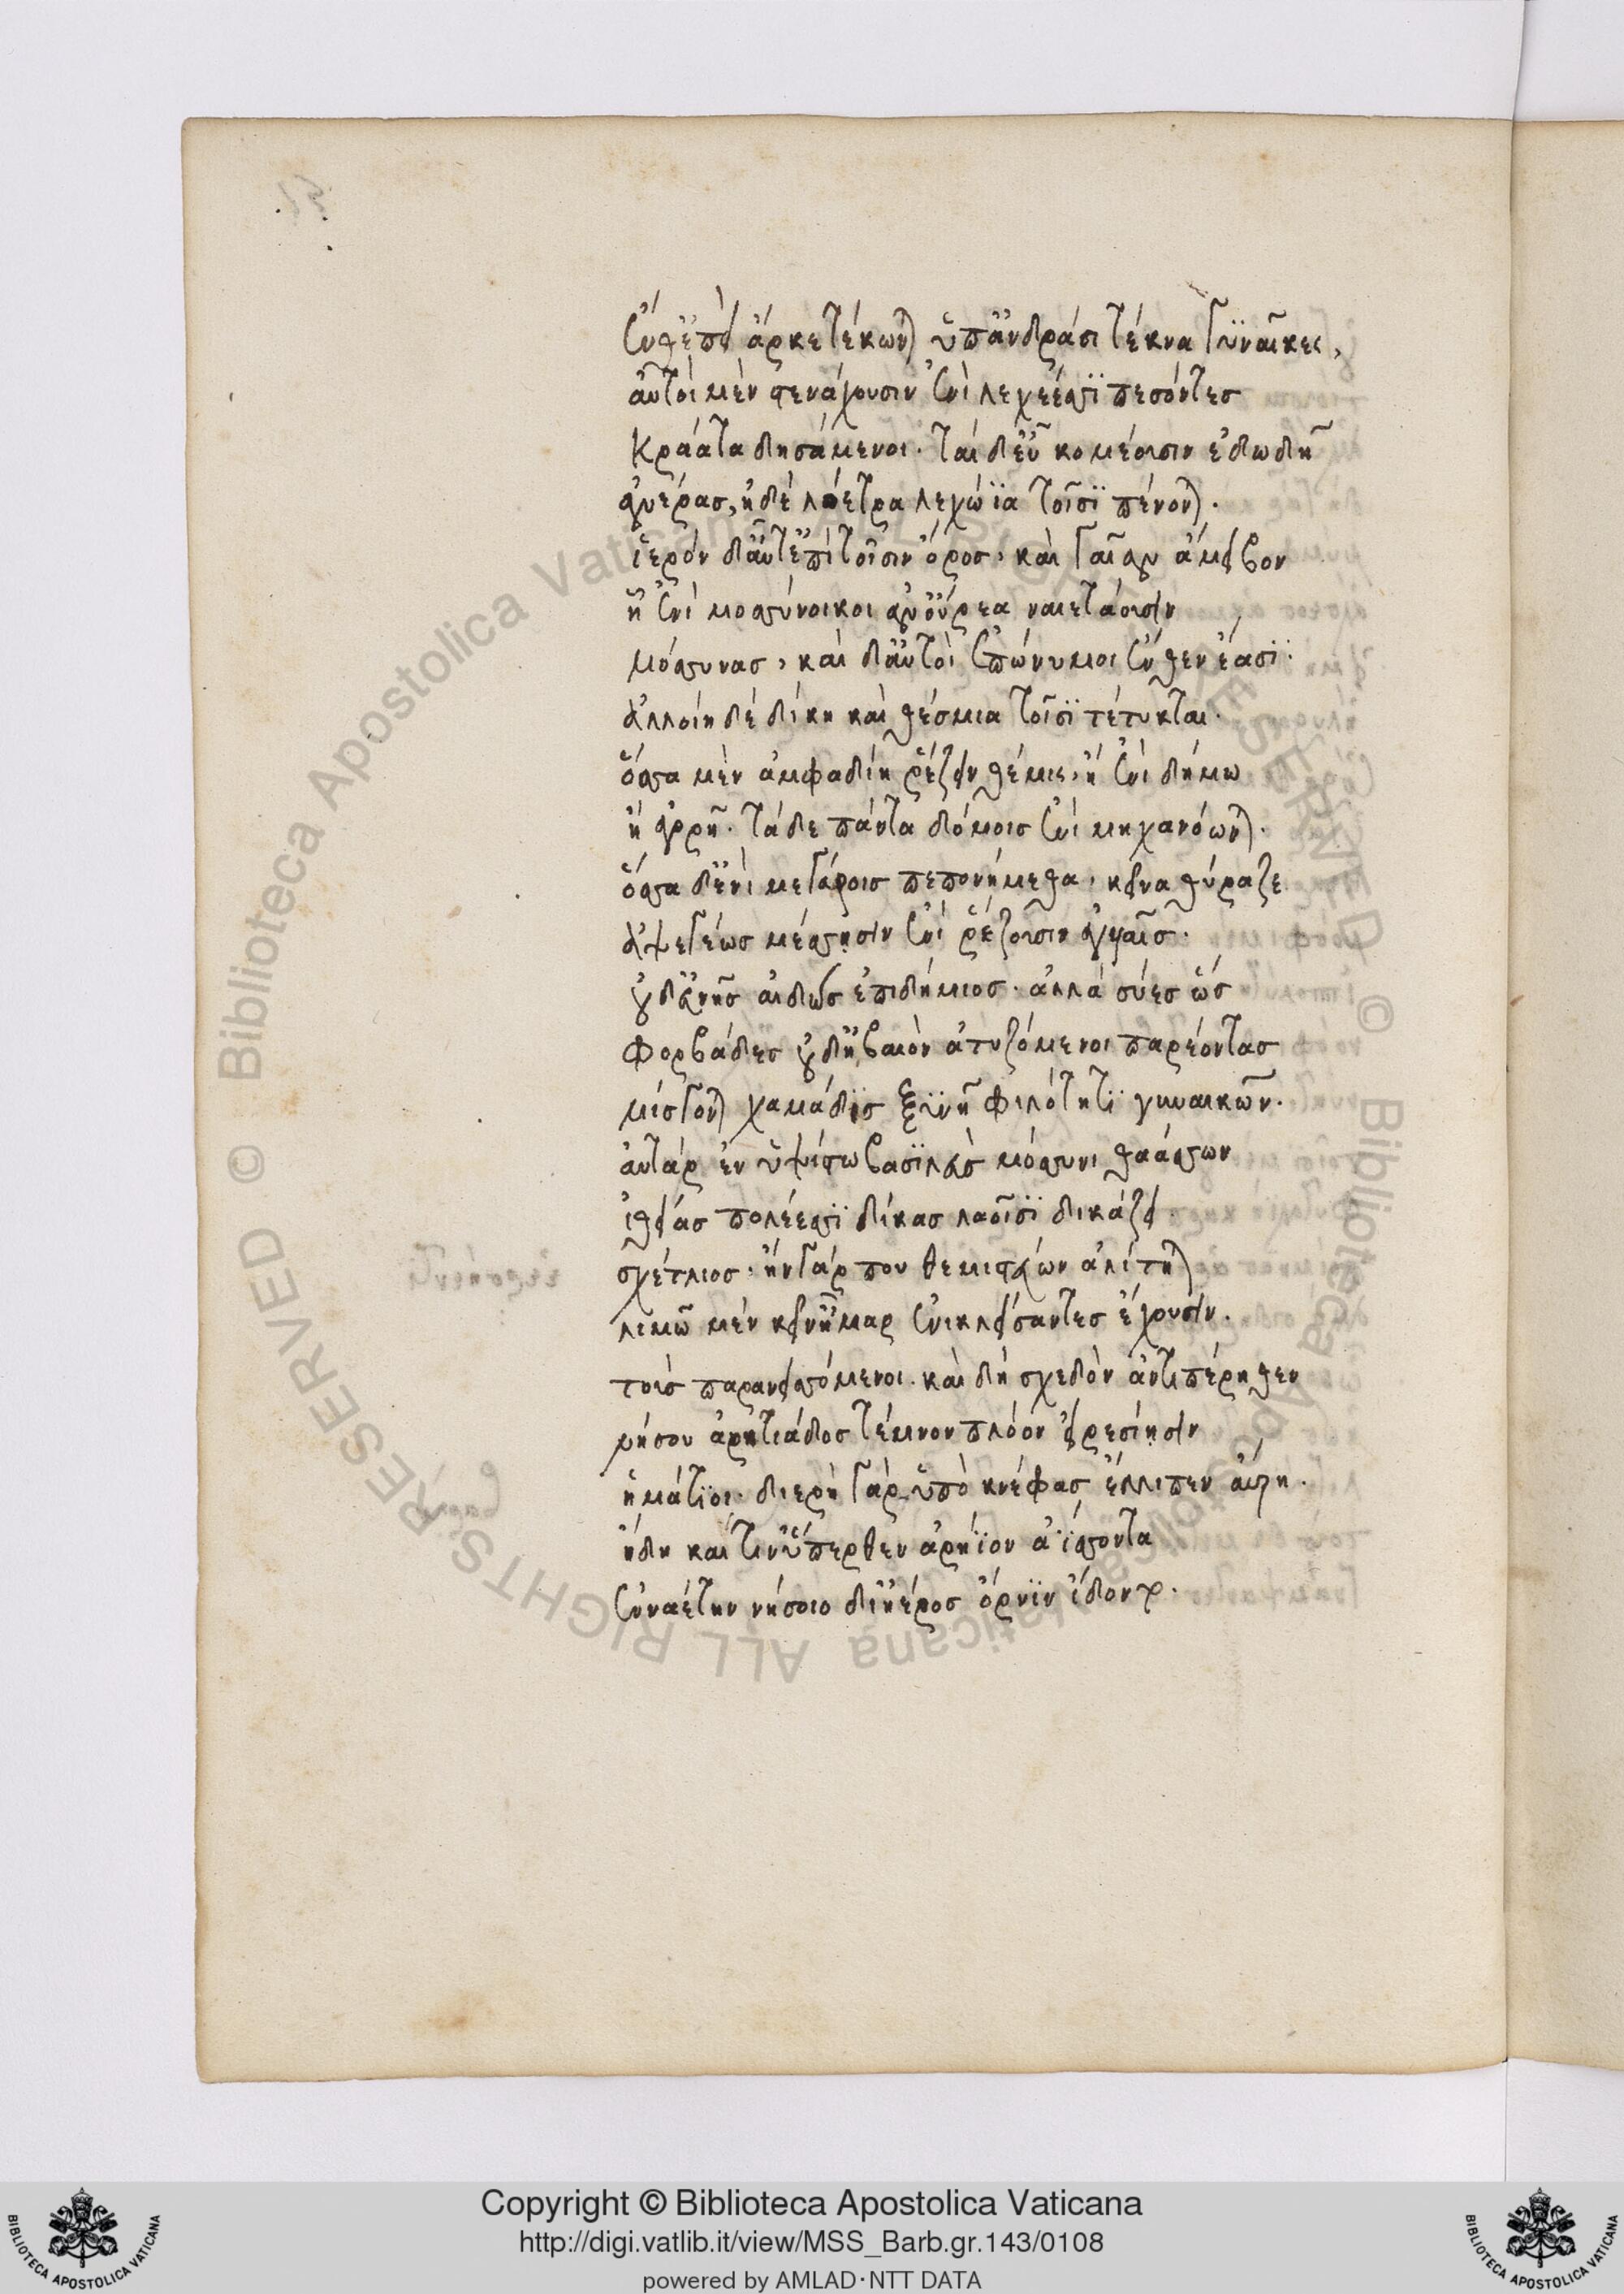 ἔνθ' ἐπεὶ ἄρ κε τέκωνται ὑπ' ἀνδράσι τέκνα γυναῖκες,
αὐτοὶ μὲν στενάχουσιν ἐνὶ λεχέεσσι πεσόντες
κράατα δησάμενοι· ταὶ δ' εὖ κομέουσιν ἐδωδῇ
ἀνέρας, ἠδὲ λοετρὰ λεχώϊα τοῖσι πένονται.
ἱερὸν δ' αὖτ' ἐπὶ τοῖσιν ὄρος, καὶ γαῖαν ἄμειβον
ᾗ ἐνὶ μοσσύνοικοι ἀν' οὔρεα ναιετάουσιν
μόσσυνας, καὶ δ' αὐτοὶ ἐπώνυμοι ἔνθεν ἔασι.
ἀλλοίη δὲ δίκη καὶ θέσμια τοῖσι τέτυκται.
ὅσσα μὲν ἀμφαδίη ῥέζειν θέμις, ἢ ἐνὶ δήμω
ἢ ἀγορῇ. τάδε πάντα δόμοις ἐνὶ μηχανόωνται.
ὅσσα δ' ἐνὶ μεγάροις πεπονήμεθα, κεῖνα θύραζε
ἀψεγέως μέσσησιν ἐνὶ ῥέζουσιν ἀγυιαῖς.
οὐδ' εὐνῆς αἰδὼς ἐπιδήμιος. ἀλλὰ σύες ὣς
φορβάδες οὐδ' ἠβαιὸν ἀτυζόμενοι παρεόντας
μίσγονται χαμάδις ξυνῇ φιλότητι γυναικῶν.
αὐτὰρ ἐν ὑψίστω βασιλεὺς μόσσυνι θαάσσων
ἰθείας πολέεσσι δίκας λαοῖσι δικάζει
σχέτλιος· ἢν γάρ που θεμιστεύων ἀλίτηται
λιμῶ μὲν κεῖν' ἦμαρ ἐνικλείσαντες ἔχουσιν.
τοὺς παρανεισσόμενοι. καὶ δὴ σχεδὸν ἀντιπέρηθεν
νήσου ἀρητιάδος τέμνον πλόον εἰρεσίησιν
ἡμάτιοι· διερὴ γὰρ ὑπὸ κνέφας ἔλλιπεν αὔρη.
ἤδη καί τιν' ὕπερθεν ἀρήϊον ἀΐσσοντα
ἐνναέτην νήσοιο δι' ἠέρος ὄρνιν ἴδοντο.
Copyright © Biblioteca Apostolica Vaticana
http://digi.vatlib.it/view/MSS_Barb.gr.143/0108
powered by AMLAD·NTT DATA